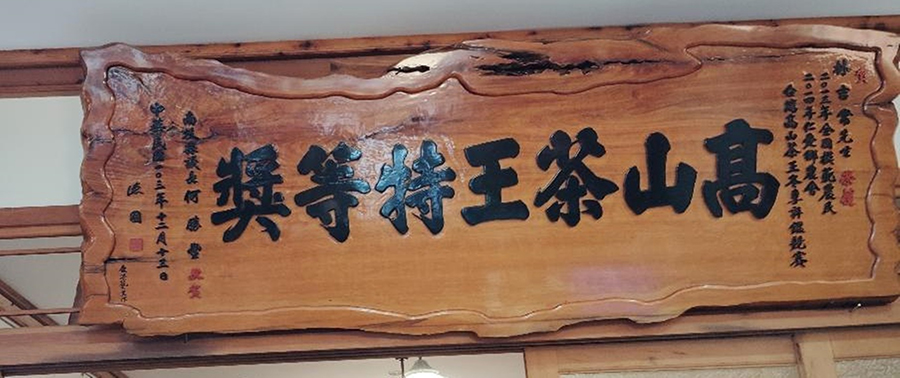 賀
二〇一三年全國模範農民
二〇一四年仁愛鄉農會
台灣高山茶王冬季評鑑競賽
榮獲
高山茶王特等獎
南投縣議長 何勝豐 敬賀
中華民國一〇三年十二月十三日